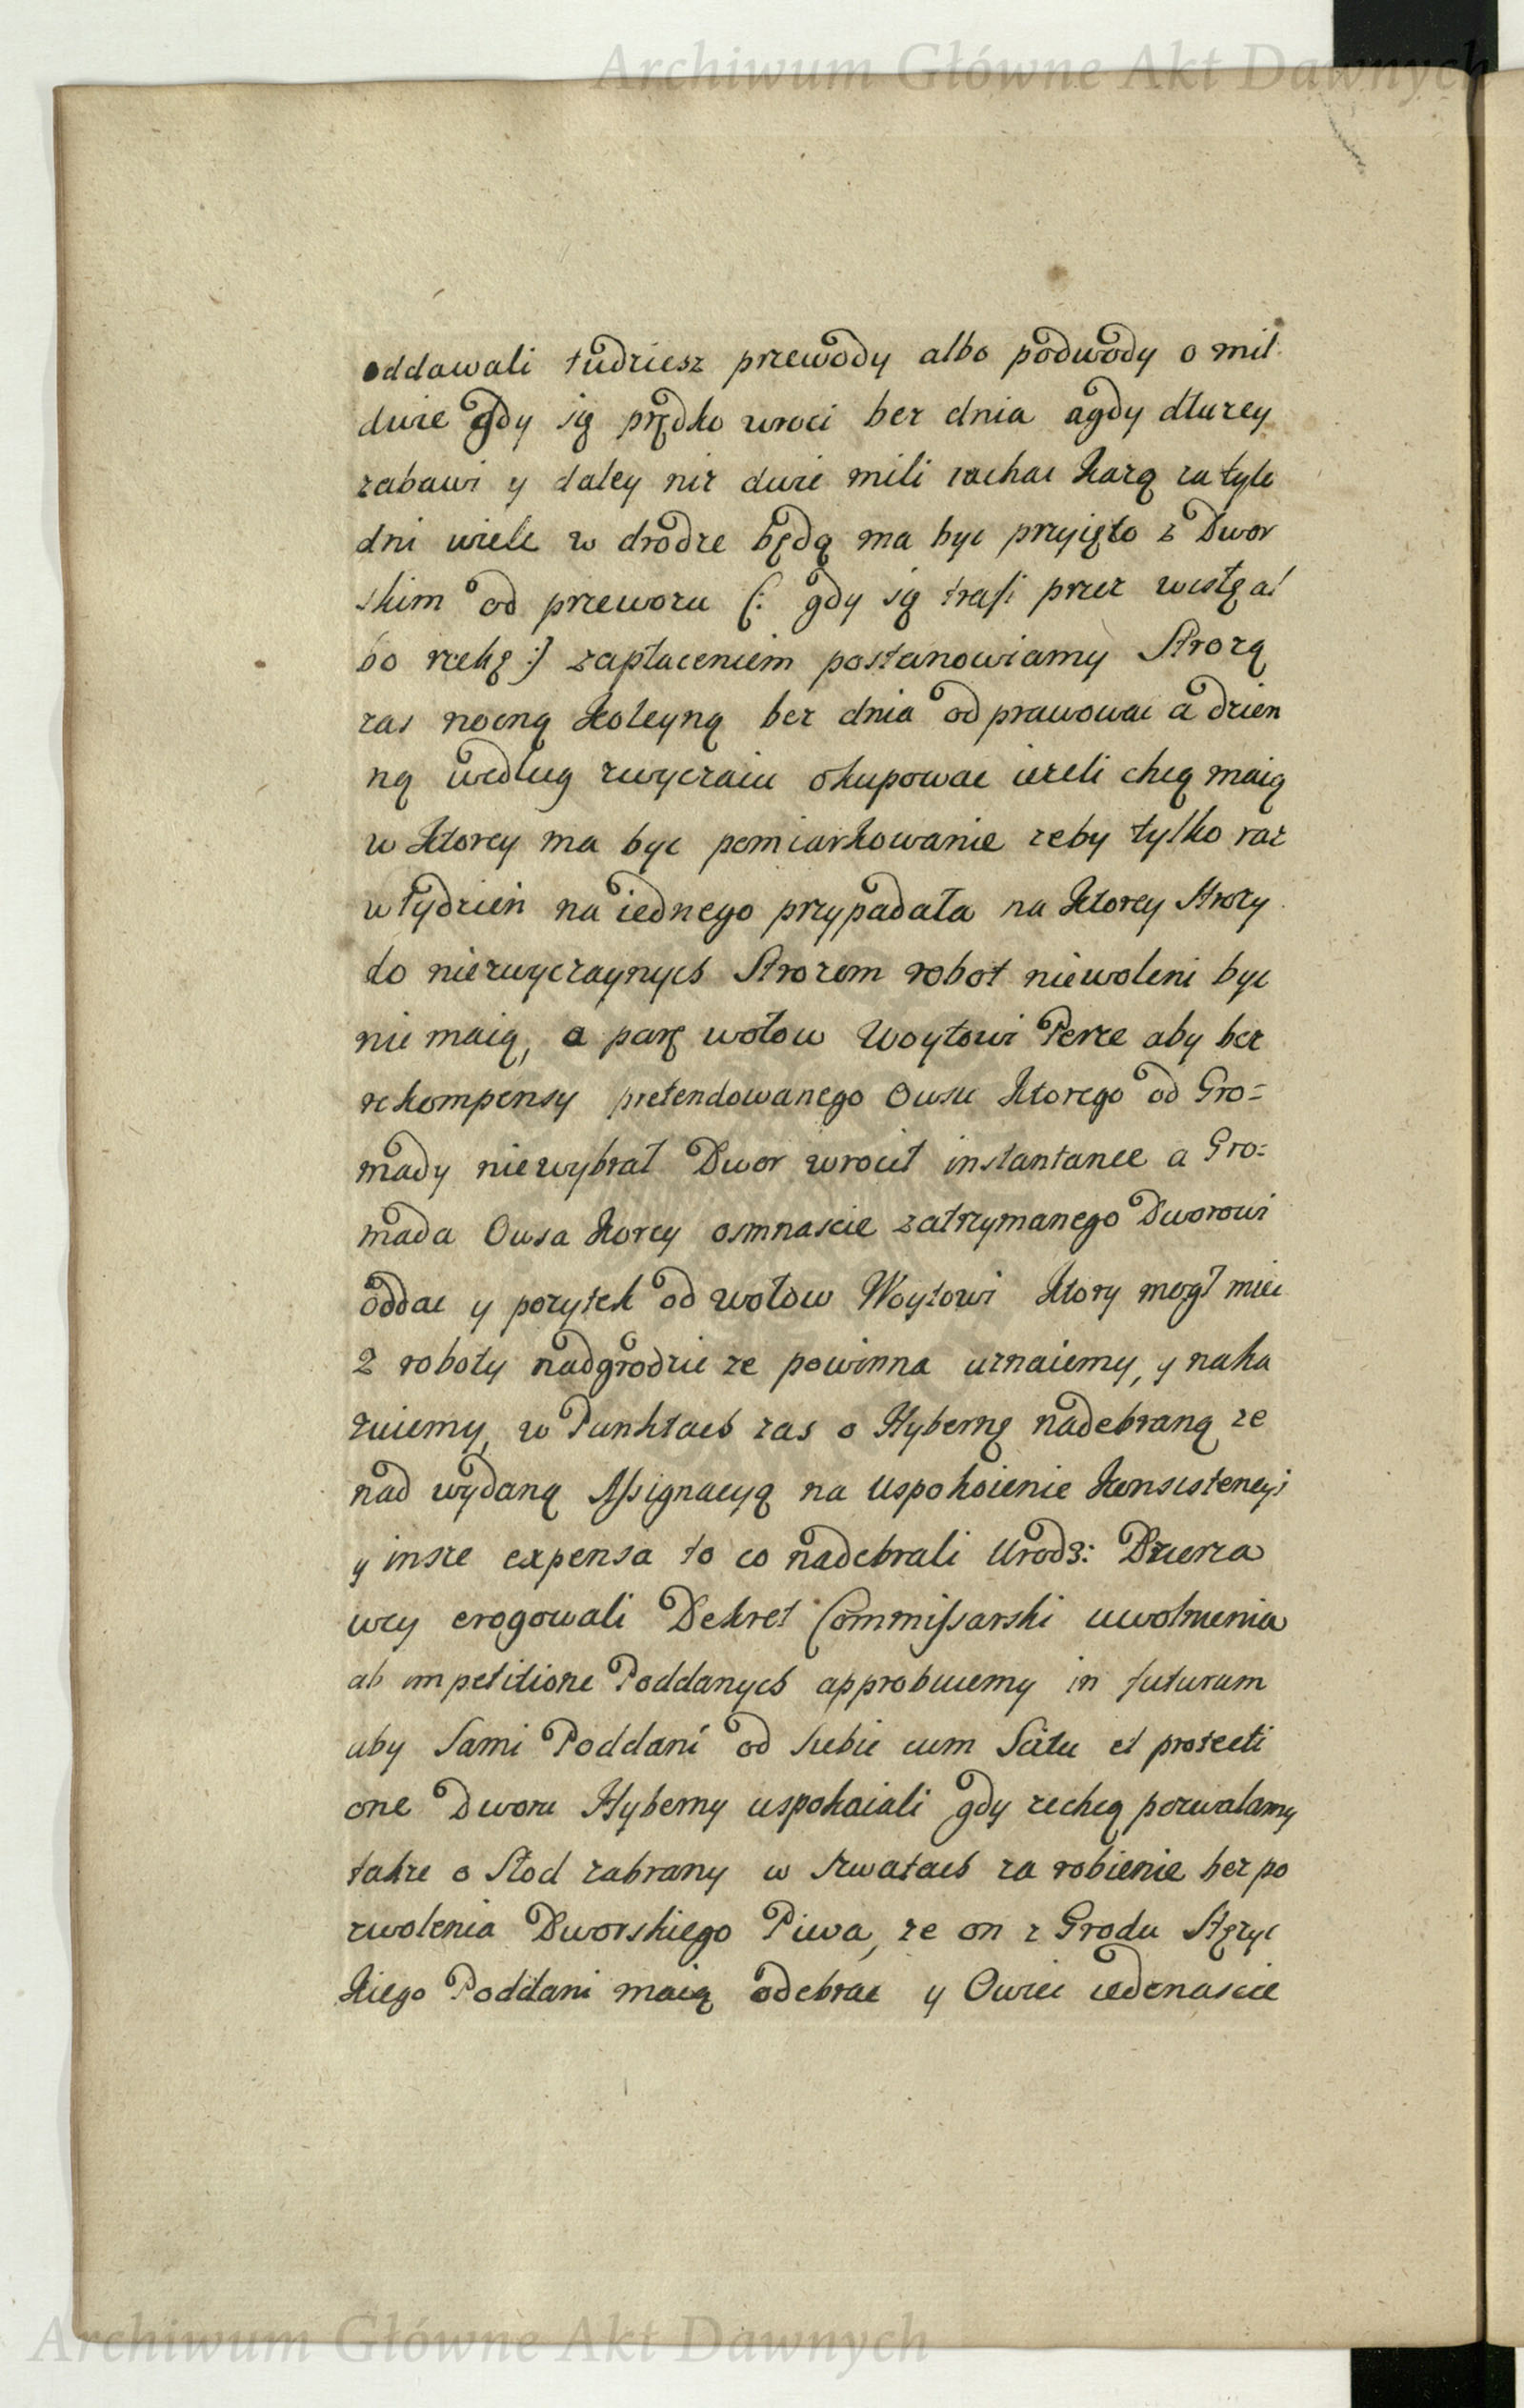 Archiwum Główne Akt Dawnych
oddawali tudziesz przewody albo podwody o mil
dwie gdy się prędko wroci bez dnia agdy dłuzey
zabawi y daley niz dwie mili iachac kazą za tyle
dni wiele w drodze będą ma byc przyięto z Dwor
skim od przewozu (: gdy się trafi przez wisłę al
bo rzekę :) zapłaceniem postanowiamy Strozą
zas nocną koleyną bez dnia odprawowac a dzien
ną według zwyczaiu okupowac iezeli chcą maią
w ktorey ma byc pomiarkowanie zeby tylko raz
w tydzień na iednego przypadała na ktorey Strozy
do niezwyczaynych Strozom robot niewoleni byc
nie maią, a parę wołow Woytowi Perze aby bez
rekompensy pretendowanego Owsu ktorego od Gro=
mady niewybrał Dwor wrocił instantanee a Gro=
mada Owsa korcy osmnascie zatrzymanego Dworowi
oddac y pozytek od wołow Woytowi ktory mogł miec
z roboty nadgrodzic ze powinna uznaiemy, y naka
zuiemy, w Punktach zas o Hybernę nadebraną ze
nad wydaną Assignacyą na uspokoienie konsistencyi
y insze expensa to co nadebrali Urodz: Dzierza
wcy erogowali Dekret Commissarski uwolnienia
ab impetitione Poddanych approbuiemy in futurum
aby Sami Poddani od siebie cum Scitu et protecti
one Dworu Hyberny uspokaiali gdy zechcą pozwalamy
takze o Słod zabrany w kwatach za robienie bez po
zwolenia Dworskiego Piwa, ze on z Grodu Stęzyc
kiego Poddani maią odebrac y Owiec iedenascie
Archiwum Główne Akt Dawnych